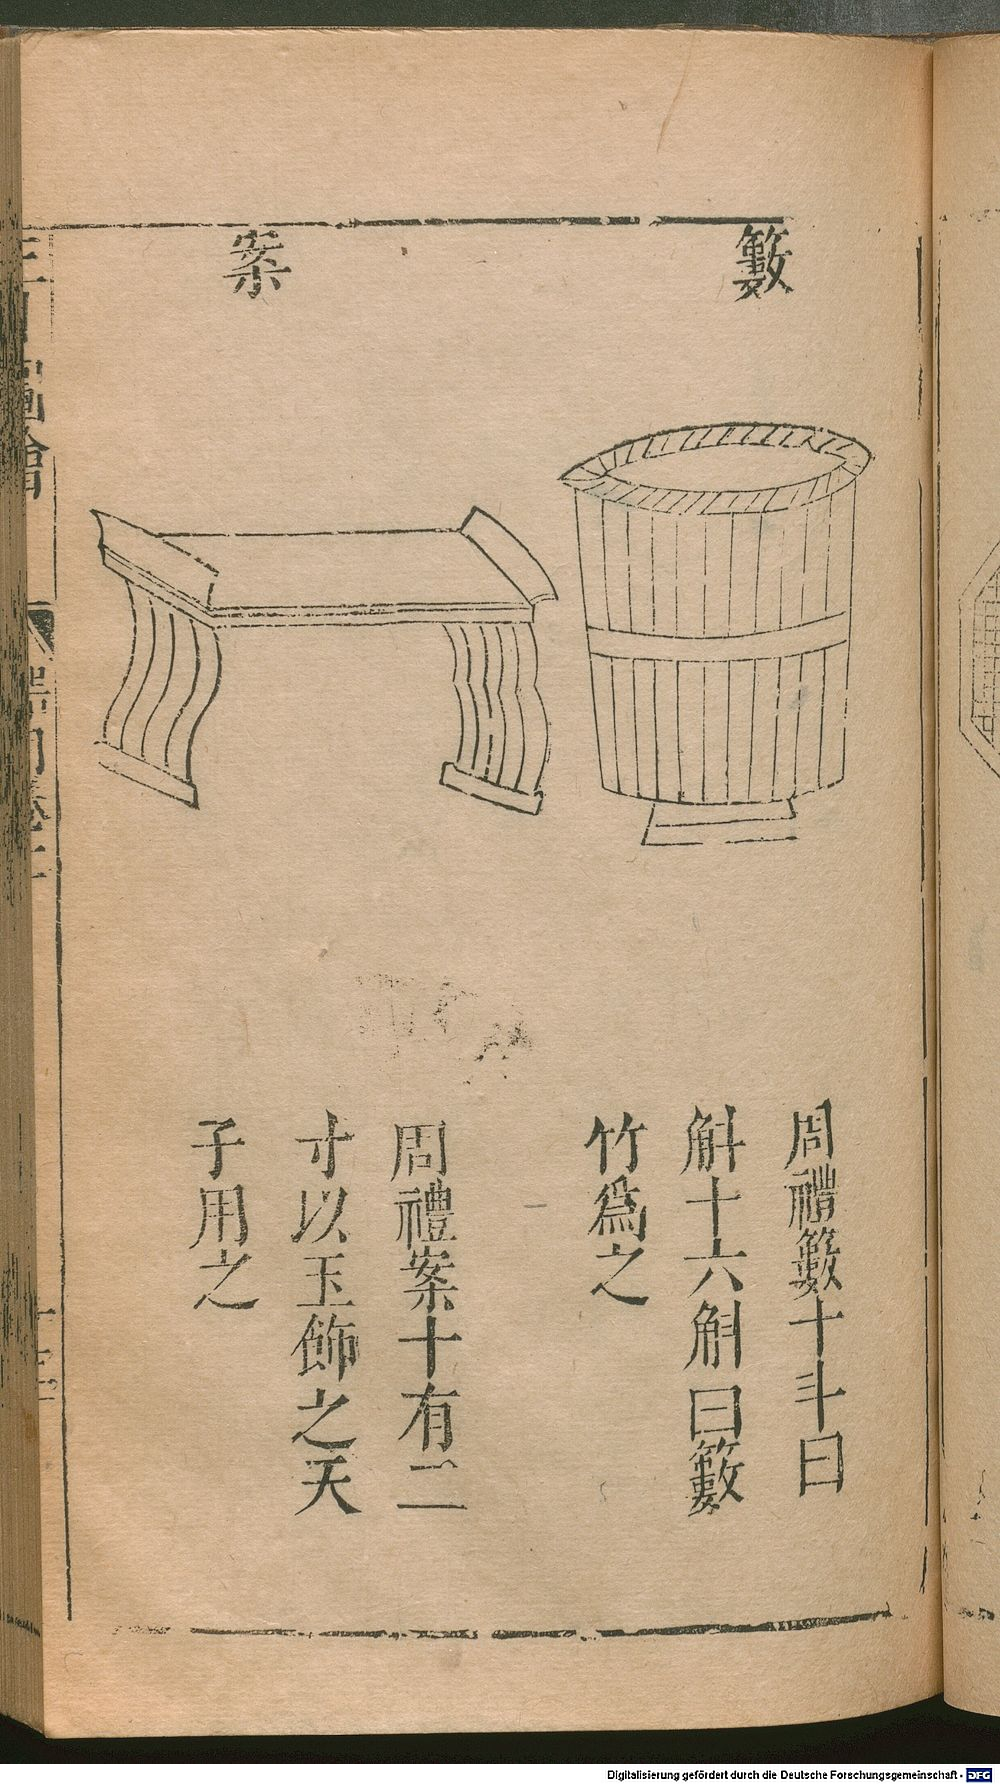 籔
周禮籔十斗曰
斛十六斛曰籔
竹爲之
案
周禮案十有二
寸以玉飾之天
子用之
圖會
器用卷十二
Digitalisierung gefördert durch die Deutsche Forschungsgemeinschaft - DFG